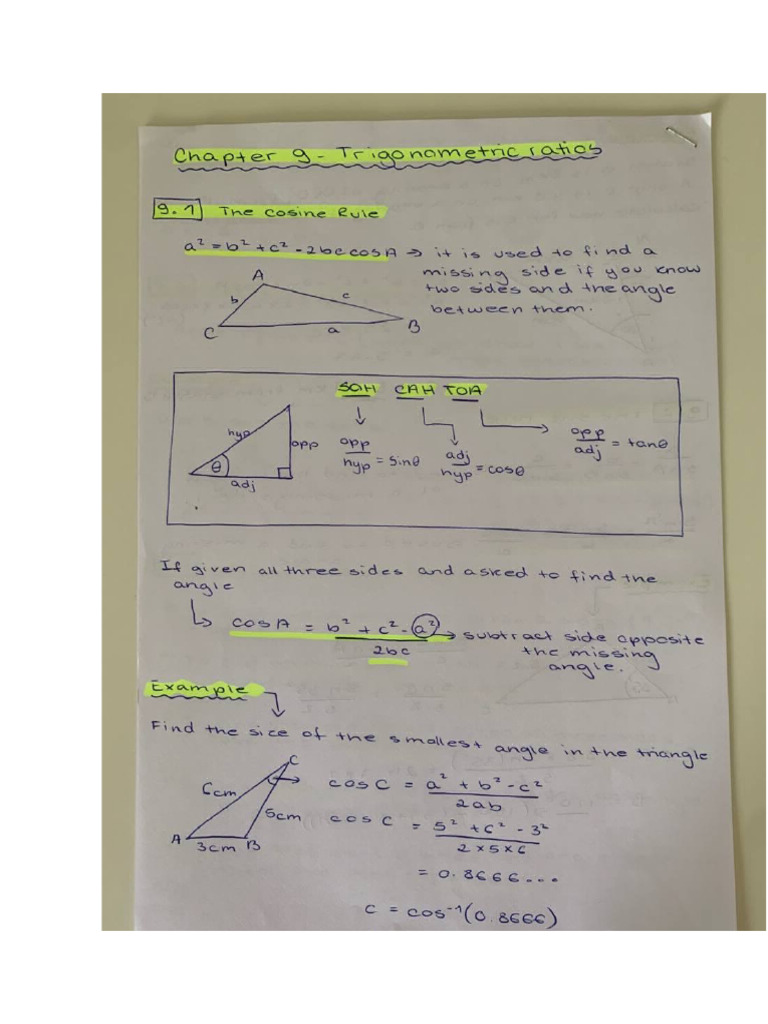 Chapter 9 - Trigonometric ratios
9.1 The Cosine Rule
a² = b² + c² - 2bc cosA → it is used to find a
missing side if you know
two sides and the angle
between them.
A
b
c
C
a
B
SOH CAH TOA
hyp
opp
θ
adj
opp/hyp = sinθ
adj/hyp = cosθ
opp/adj = tanθ
If given all three sides and asked to find the
angle
↳ cosA = b² + c² - a² / 2bc → subtract side opposite
the missing
angle.
Example
Find the sice of the smallest angle in the triangle
C
6cm
5cm
A
3cm
B
cos C = a² + b² - c² / 2ab
cos C = 5² + 6² - 3² / 2 × 5 × 6
= 0.8666...
c = cos⁻¹(0.8666)